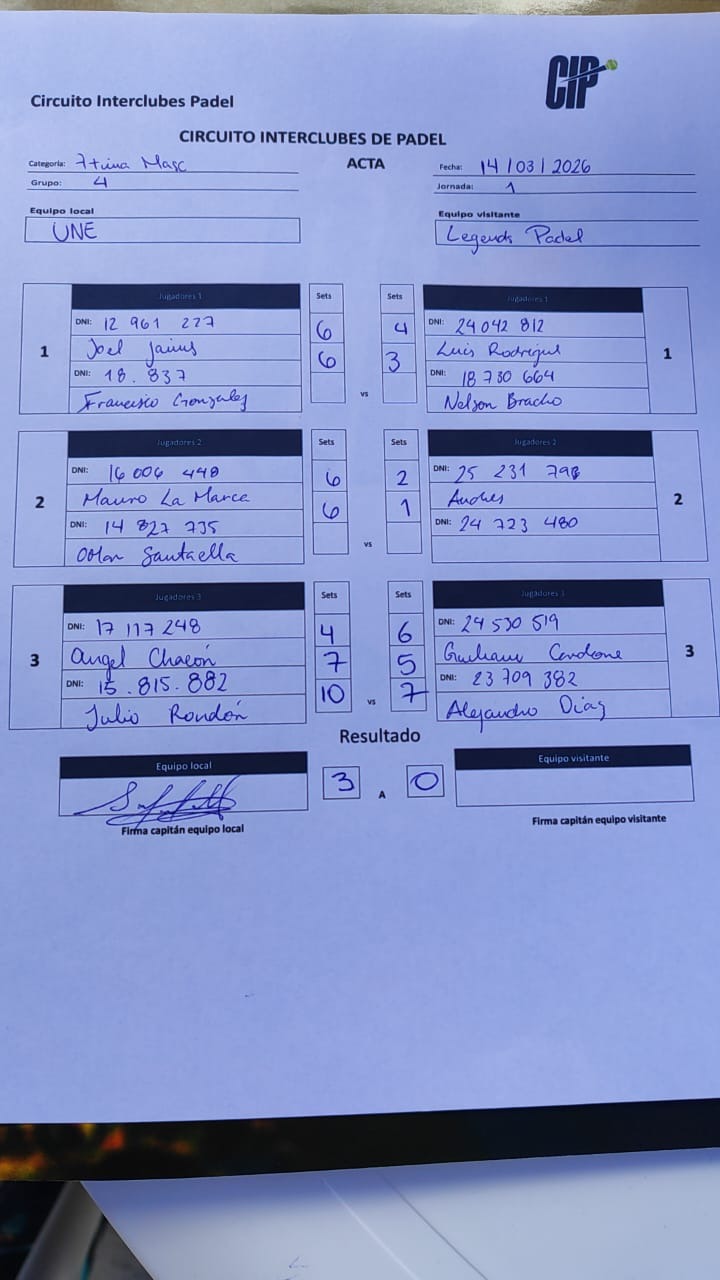 CIP
Circuito Interclubes Padel
CIRCUITO INTERCLUBES DE PADEL
Categoría: 7tima Masc ACTA Fecha: 14/03/2026
Grupo: 4 Jornada: 1
Equipo local Equipo visitante
UNE Legends Padel
Jugadores 1 Sets Sets Jugadores 1
DNI: 12 961 227 6 4 DNI: 24 042 812
1 Joel 6 3 Luis 1
DNI: 18.837 DNI: 18 730 664
Francisco Gonzalez vs Nelson Bracho
Jugadores 2 Sets Sets Jugadores 2
DNI: 16 006 448 6 2 DNI: 25 231 798
2 Mauro La Marca 6 1 Andres 2
DNI: 14 827 735 DNI: 24 723 480
Santaella vs
Jugadores 3 Sets Sets Jugadores 3
DNI: 17 117 248 4 6 DNI: 24 530 519
3 Angel Chacón 7 5 3
DNI: 15.815.882 10 vs 7 DNI: 23 709 382
Julio Rondón Alejandro Diaz
Resultado
Equipo local 3 A 0 Equipo visitante
Firma capitán equipo local Firma capitán equipo visitante